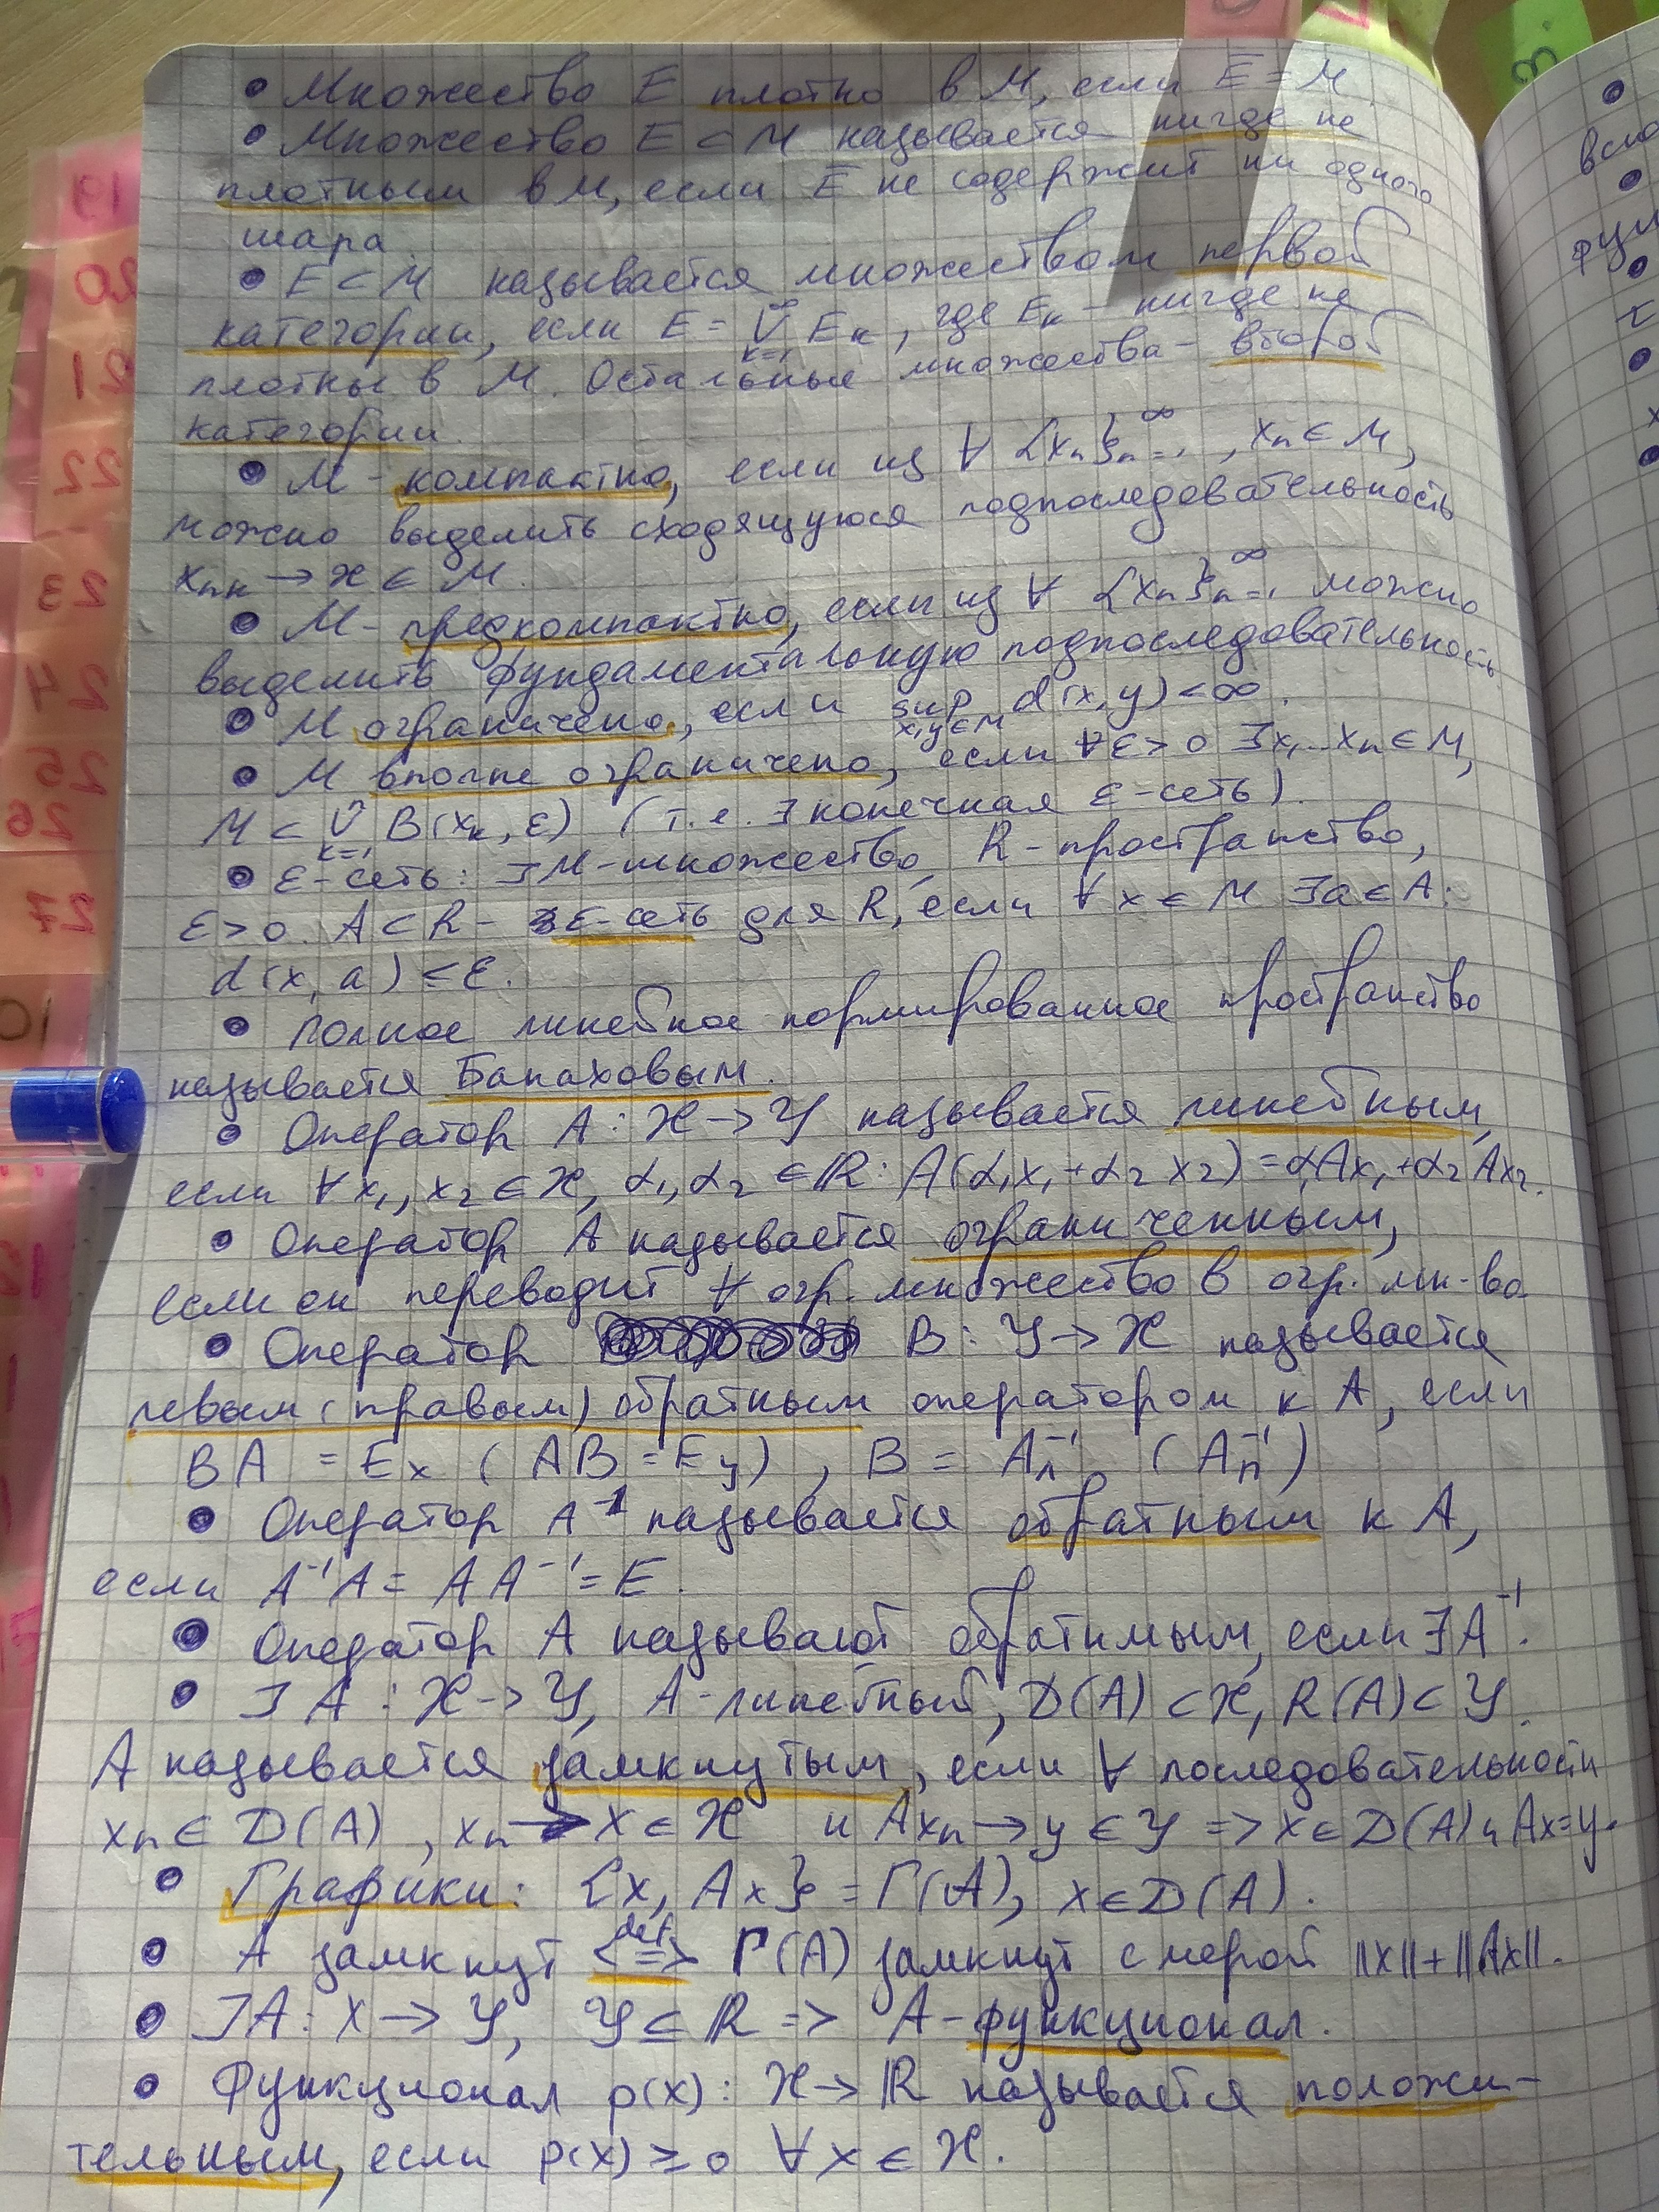 • Множество E плотно в M, если E̅ = M
• Множество E ⊂ M называется нигде не
плотным в M, если E̅ не содержит ни одного
шара.
• E ⊂ M называется множеством первой
категории, если E = ∪_{k=1}^∞ E_k, где E_k – нигде не
плотны в M. Остальные множества – второй
категории.
• M – компактно, если из ∀ {x_n}_{n=1}^∞, x_n ∈ M,
можно выделить сходящуюся подпоследовательность
x_{n_k} → x ∈ M.
• M – предкомпактно, если из ∀ {x_n}_{n=1}^∞ можно
выделить фундаментальную подпоследовательность
• M ограничено, если sup_{x,y∈M} d(x,y) < ∞.
• M вполне ограничено, если ∀ε > 0 ∃x₁...x_n ∈ M,
M ⊂ ∪_{k=1}^n B(x_k, ε) (т.е. ∃ конечная ε-сеть).
• ε-сеть: ∃ M – множество, R – пространство,
ε > 0. A ⊂ R – ε-сеть для R, если ∀ x ∈ M ∃a ∈ A:
d(x, a) ≤ ε.
• Полное линейное нормированное пространство
называется Банаховым.
• Оператор A : X → Y называется линейным,
если ∀ x₁, x₂ ∈ X, α₁, α₂ ∈ ℝ : A(α₁x₁ + α₂x₂) = α₁Ax₁ + α₂Ax₂.
• Оператор A называется ограниченным,
если он переводит ∀ огр. множество в огр. мн-во
• Оператор B : Y → X называется
левым (правым) обратным оператором к A, если
BA = E_x (AB = E_y), B = A_л⁻¹ (A_п⁻¹)
• Оператор A⁻¹ называется обратным к A,
если A⁻¹A = AA⁻¹ = E.
• Оператор A называют обратимым, если ∃A⁻¹.
• ∃ A : X → Y, A – линейный, D(A) ⊂ X, R(A) ⊂ Y.
A называется замкнутым, если ∀ последовательности
x_n ∈ D(A), x_n → x ∈ X и Ax_n → y ∈ Y => x ∈ D(A) и Ax = y.
• Графики: {x, Ax} = Γ(A), x ∈ D(A).
• A замкнут <=def=> Γ(A) замкнут с мерой ||x|| + ||Ax||.
• ∃A : X → Y, Y ⊆ ℝ => A – функционал.
• Функционал p(x) : X → ℝ называется положи-
тельным, если p(x) ≥ 0 ∀ x ∈ X.
19
20
21
22
23
24
25
26
27
10